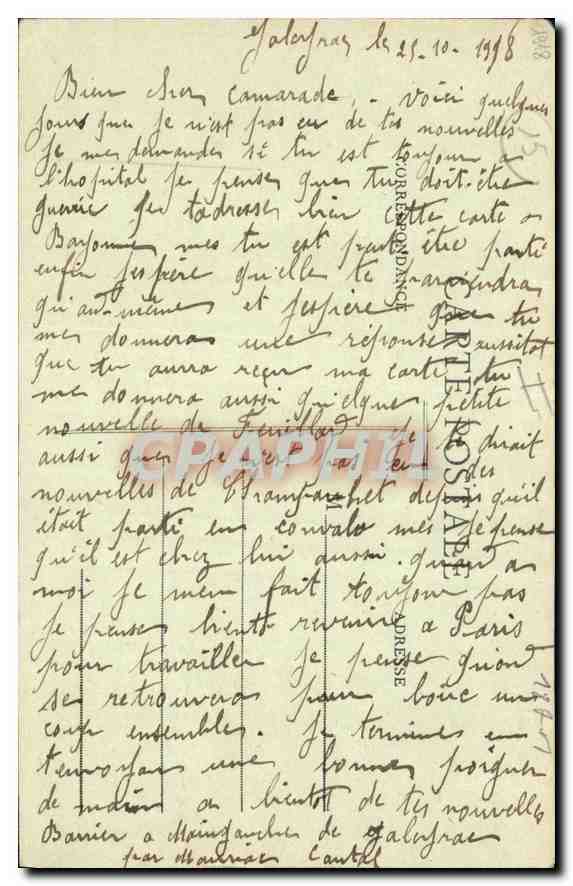 le 25-10-1918
Bien cher Camarade, - Voici quelques
jours que je n'est pas eu de tes nouvelles
Je me demandes si tu est toujour a
l'hopital je pense que tu doit-être
guerrie je t'adresses bien cette carte a
Bayonne, mes tu est peut être parti
enfin j'espère qu'elle te parviendra
qu'and-même et j'espère que tu
me donneras une réponse aussitot
que tu aura reçu ma carte, tu
me donnera aussi quelque petite
nouvelle de Feuillard je te dirait
aussi que je n'est pas eu des
nouvelles de depuis qu'il
était parti en convalo mes je pense
qu'il est chez lui aussi. quant a
moi je men fait toujour pas
je pense bientot revenire a Paris
pour travailler je pense qu'ont
se retrouvera pour boire un
coup ensembles. Je termines en
t'envoyan une bonne poigner
de main a bientot de tes nouvelles
Barrier a de
par Mauriac Cantal
CORRESPONDANCE
CARTE POSTALE
ADRESSE
CPAPHIL